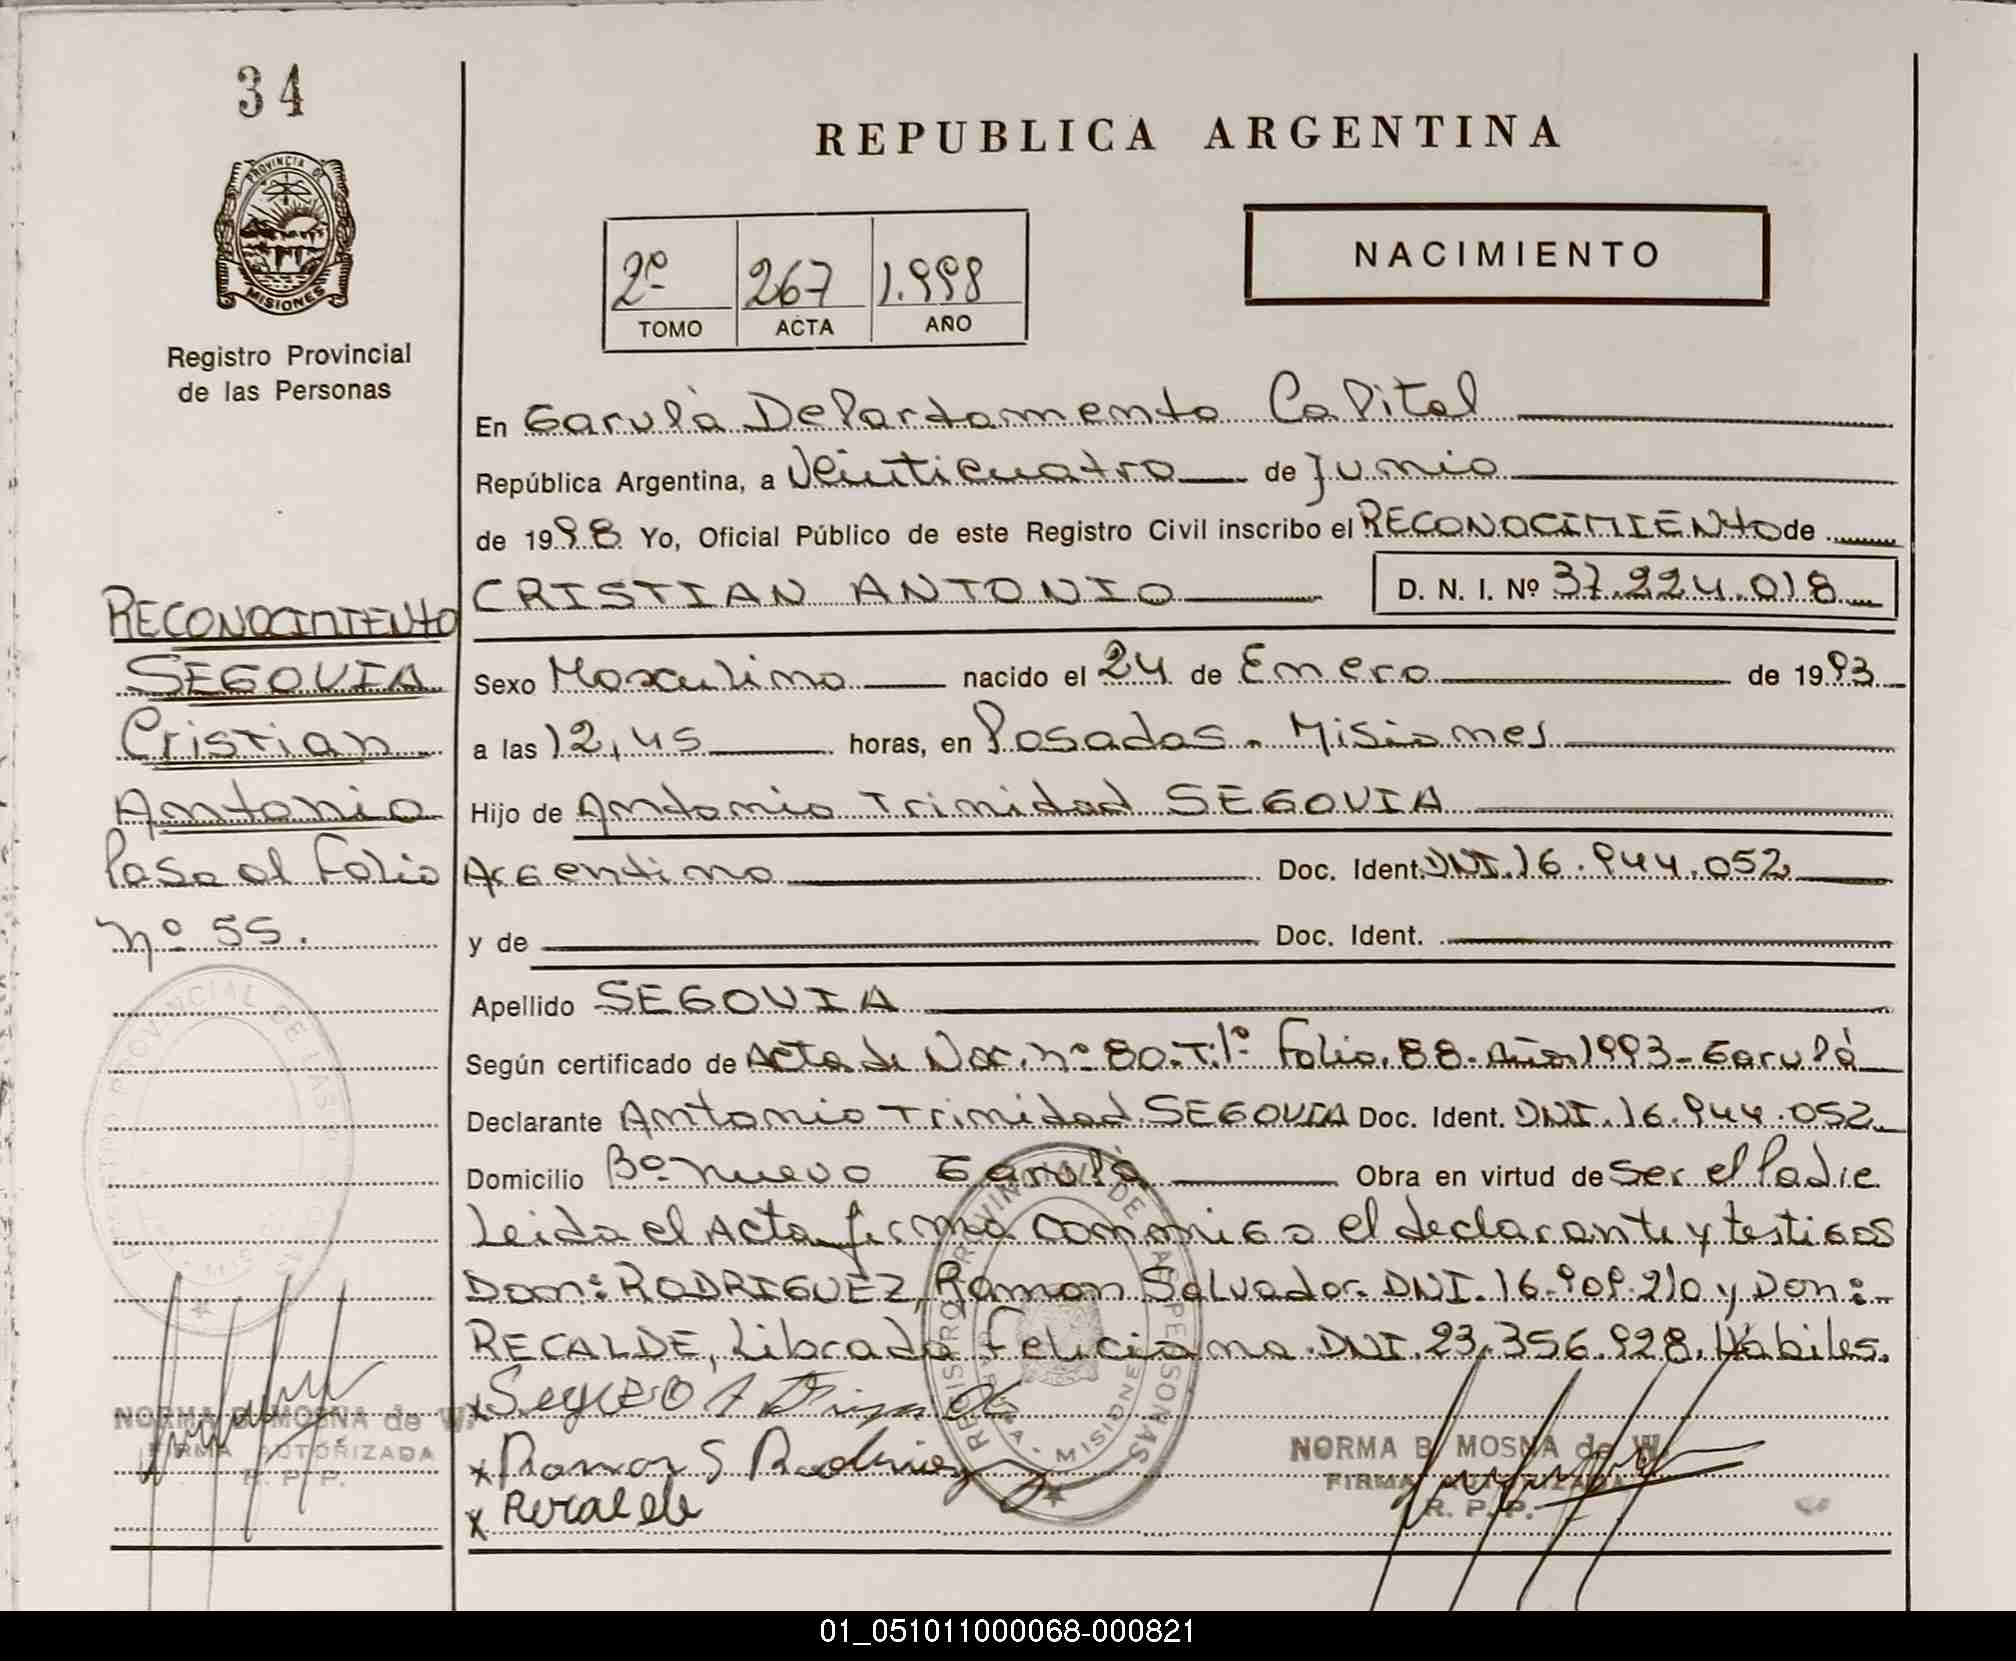 34
PROVINCIA DE
MISIONES
Registro Provincial
de las Personas
REPUBLICA ARGENTINA
NACIMIENTO
2º 267 1.998
TOMO ACTA AÑO
En Garupà Departamento Capital
República Argentina, a Veinticuatro de Junio
de 1998 Yo, Oficial Público de este Registro Civil inscribo el RECONOCIMIENTO de
CRISTIAN ANTONIO D. N. I. Nº 37.224.018
Sexo Masculino nacido el 24 de Enero de 1993
a las 12,45 horas, en Posadas. Misiones
Hijo de Antonio Trinidad SEGOVIA
Argentino Doc. Ident. DNI.16.944.052
y de Doc. Ident.
Apellido SEGOVIA
Según certificado de Acta de Nac. nº 80.T.1º Folio.88.Año.1993-Garupá
Declarante Antonio Trinidad SEGOVIA Doc. Ident. DNI.16.944.052
Domicilio Bº nuevo Garupà Obra en virtud de ser el Padre
Leida el Acta firma conmigo el declarante y testigos
Don: RODRIGUEZ, Ramon Salvador. DNI.16.909.210 y Don:-
RECALDE, Librada Feliciana.DNI.23.356.928.Habiles.
x
x Ramon S Rodriguez
x Recalde
NORMA B. MOSNA de W.
FIRMA AUTORIZADA
R. P. P.
REGISTRO PROVINCIAL DE LAS PERSONAS
MISIONES
RECONOCIMIENTO
SEGOVIA
Cristian
Antonio
Pasa al Folio
nº 55.
NORMA B. MOSNA de W.
FIRMA AUTORIZADA
R. P. P.
01_051011000068-000821